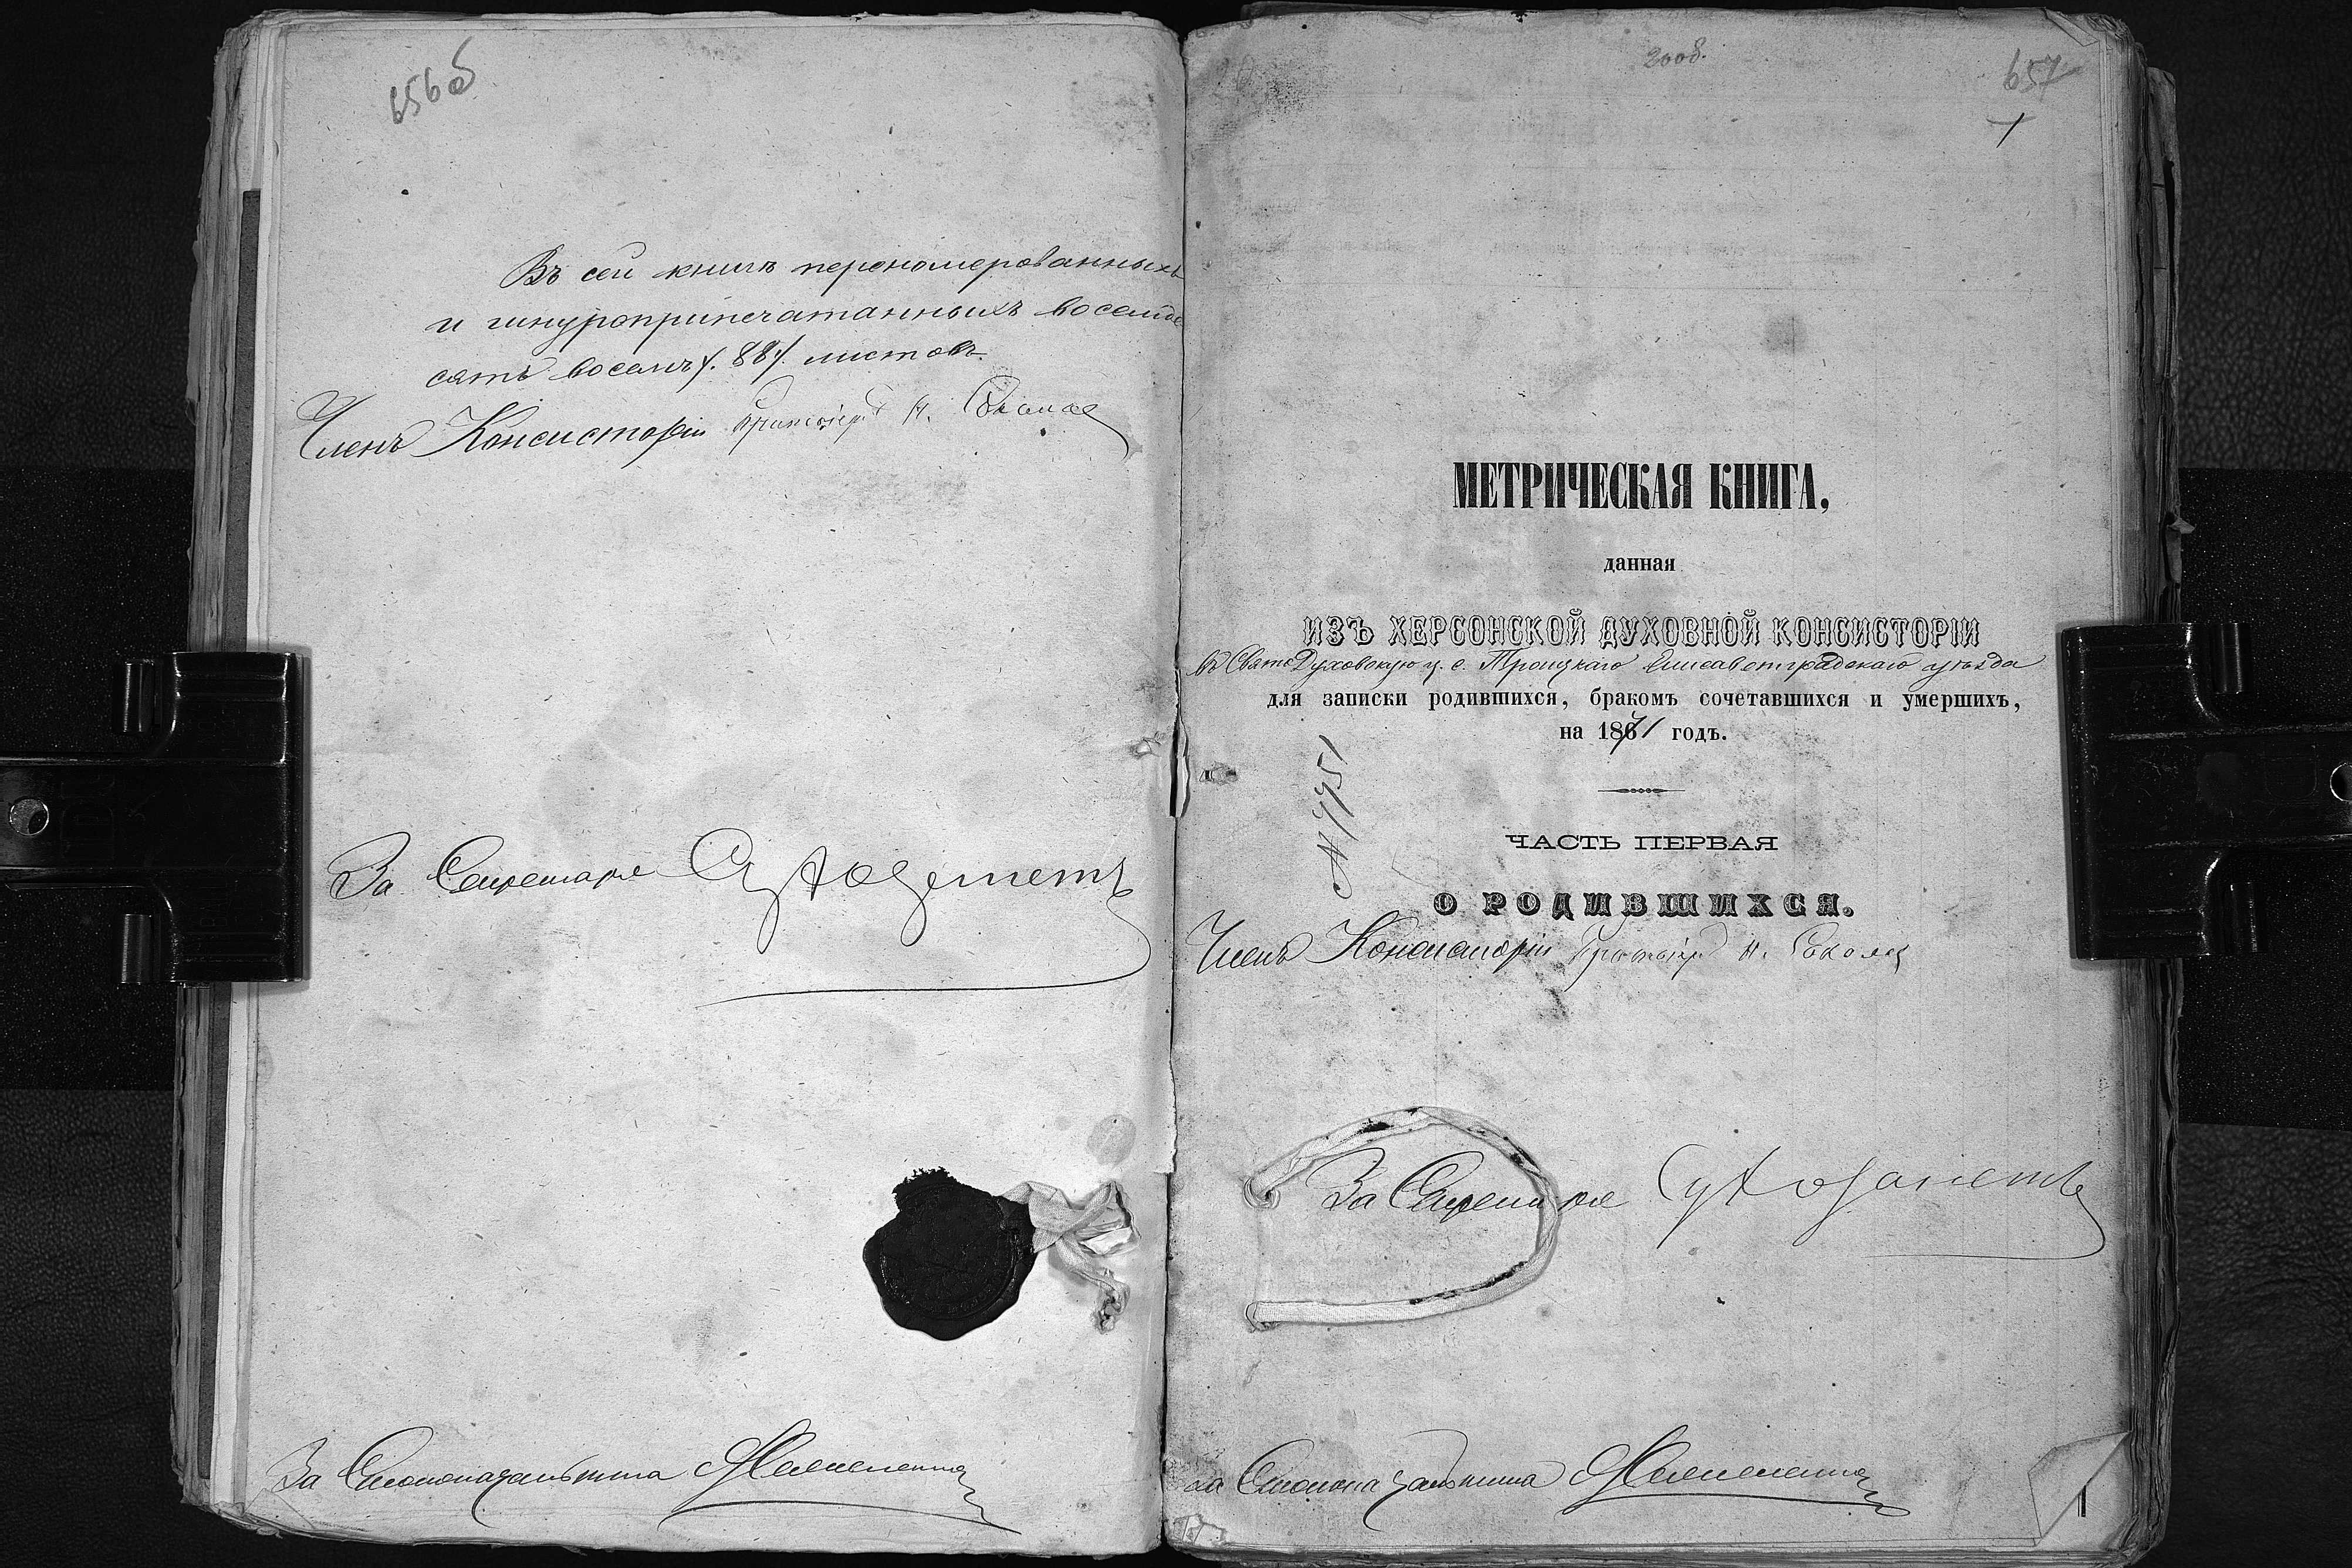 656об
Въ сей книгѣ перенумерованныхъ
и шнуроприпечатанныхъ восемьде
сятъ восемь /.88/. листовъ.
Членъ Консисторіи Протоіер. Н. Соколов
За Секретаря Сухозанетъ
За Столоначальника
200б.
657
1
МЕТРИЧЕСКАЯ КНИГА,
данная
ИЗЪ ХЕРСОНСКОЙ ДУХОВНОЙ КОНСИСТОРІИ
въ СвятоДуховскую ц. с. Троицкаго Елисаветградскаго уѣзда
для записки родившихся, бракомъ сочетавшихся и умершихъ,
на 1871 годъ.
№ 7751
ЧАСТЬ ПЕРВАЯ
О РОДИВШИХСЯ.
Членъ Консисторіи Протоіер. Н. Соколов
За Секретаря Сухозанетъ
За Столоначальника